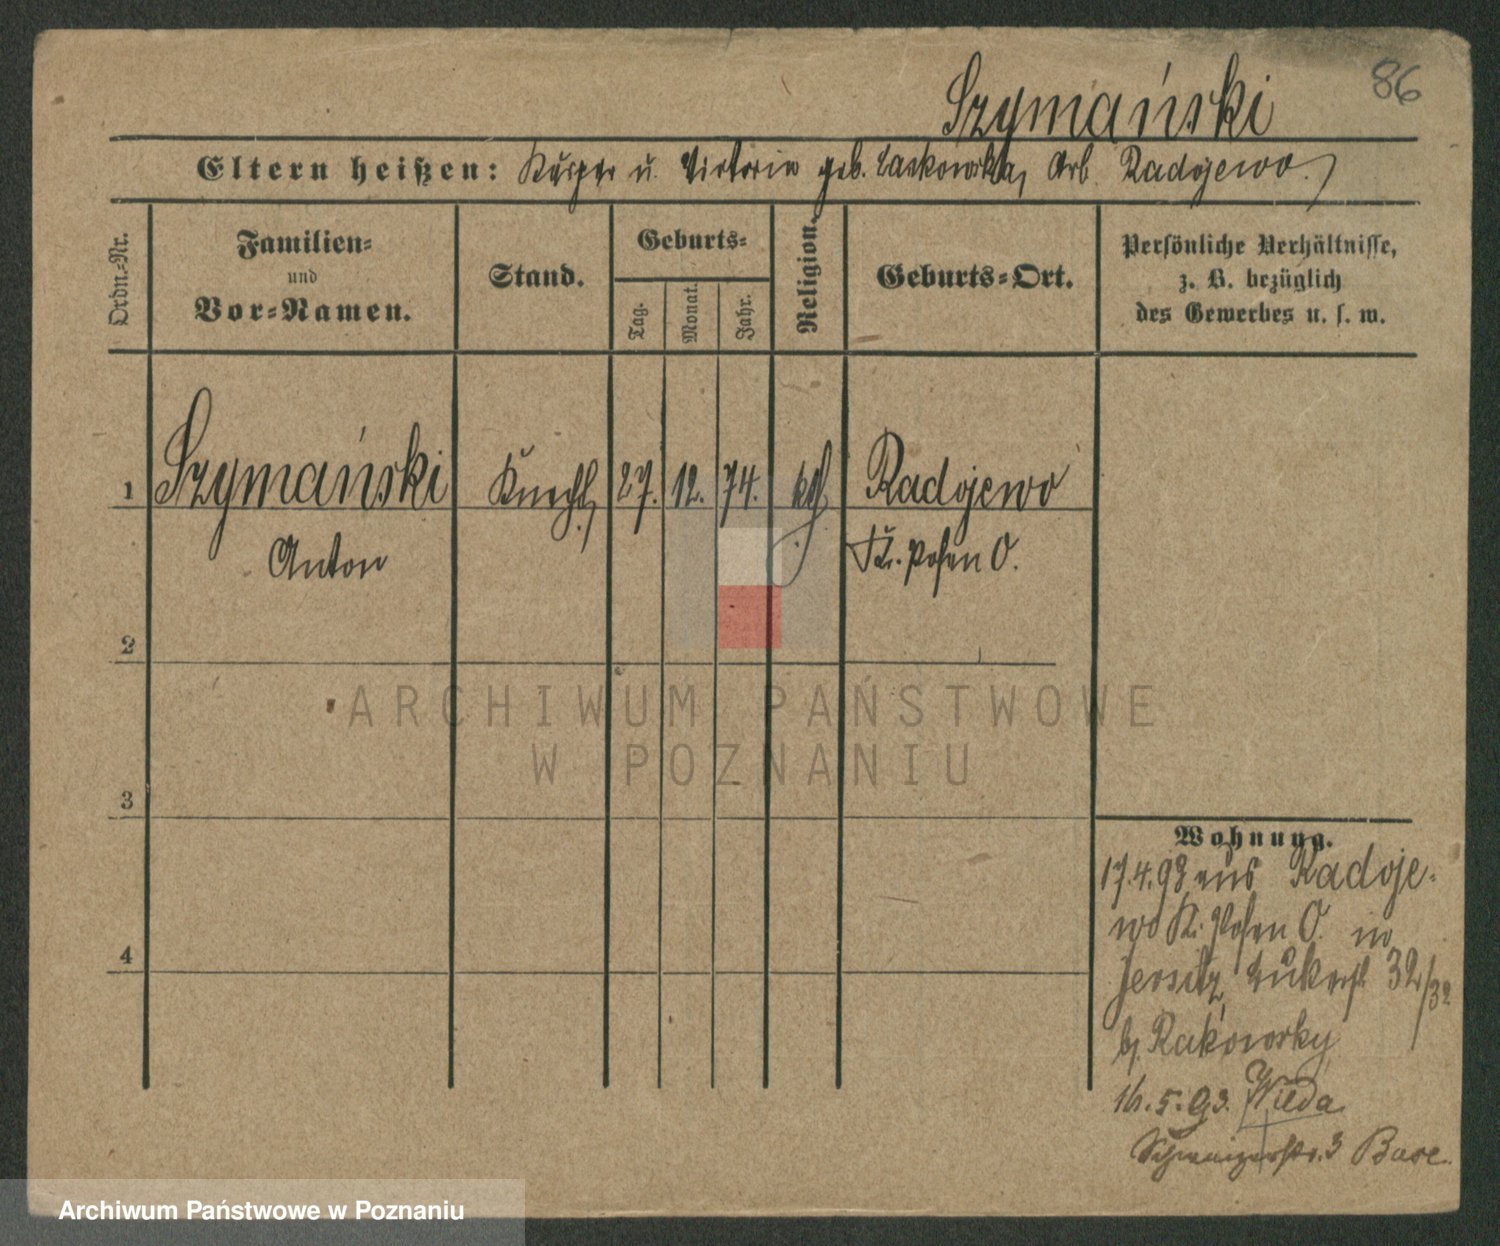 86
Szymański
Eltern heißen: Kasper u. Victoria geb. Laskowska, Arb. Radojewo.
Ordn.-Nr.
Familien-
und
Vor-Namen.
Stand.
Geburts-
Tag.
Monat.
Jahr.
Religion.
Geburts-Ort.
Persönliche Verhältnisse,
z. B. bezüglich
des Gewerbes u. s. w.
1 Szymański Knecht 27. 12. 74. kth Radojewo
Anton Kr. Posen O.
2
3
4
Wohnung.
17.4.93 aus Radoje-
wo Kr. Posen O. in
Jersitz, 32/32
b. Rakowsky
16.5.93. Wilda
3
ARCHIWUM PAŃSTWOWE
W POZNANIU
Archiwum Państwowe w Poznaniu